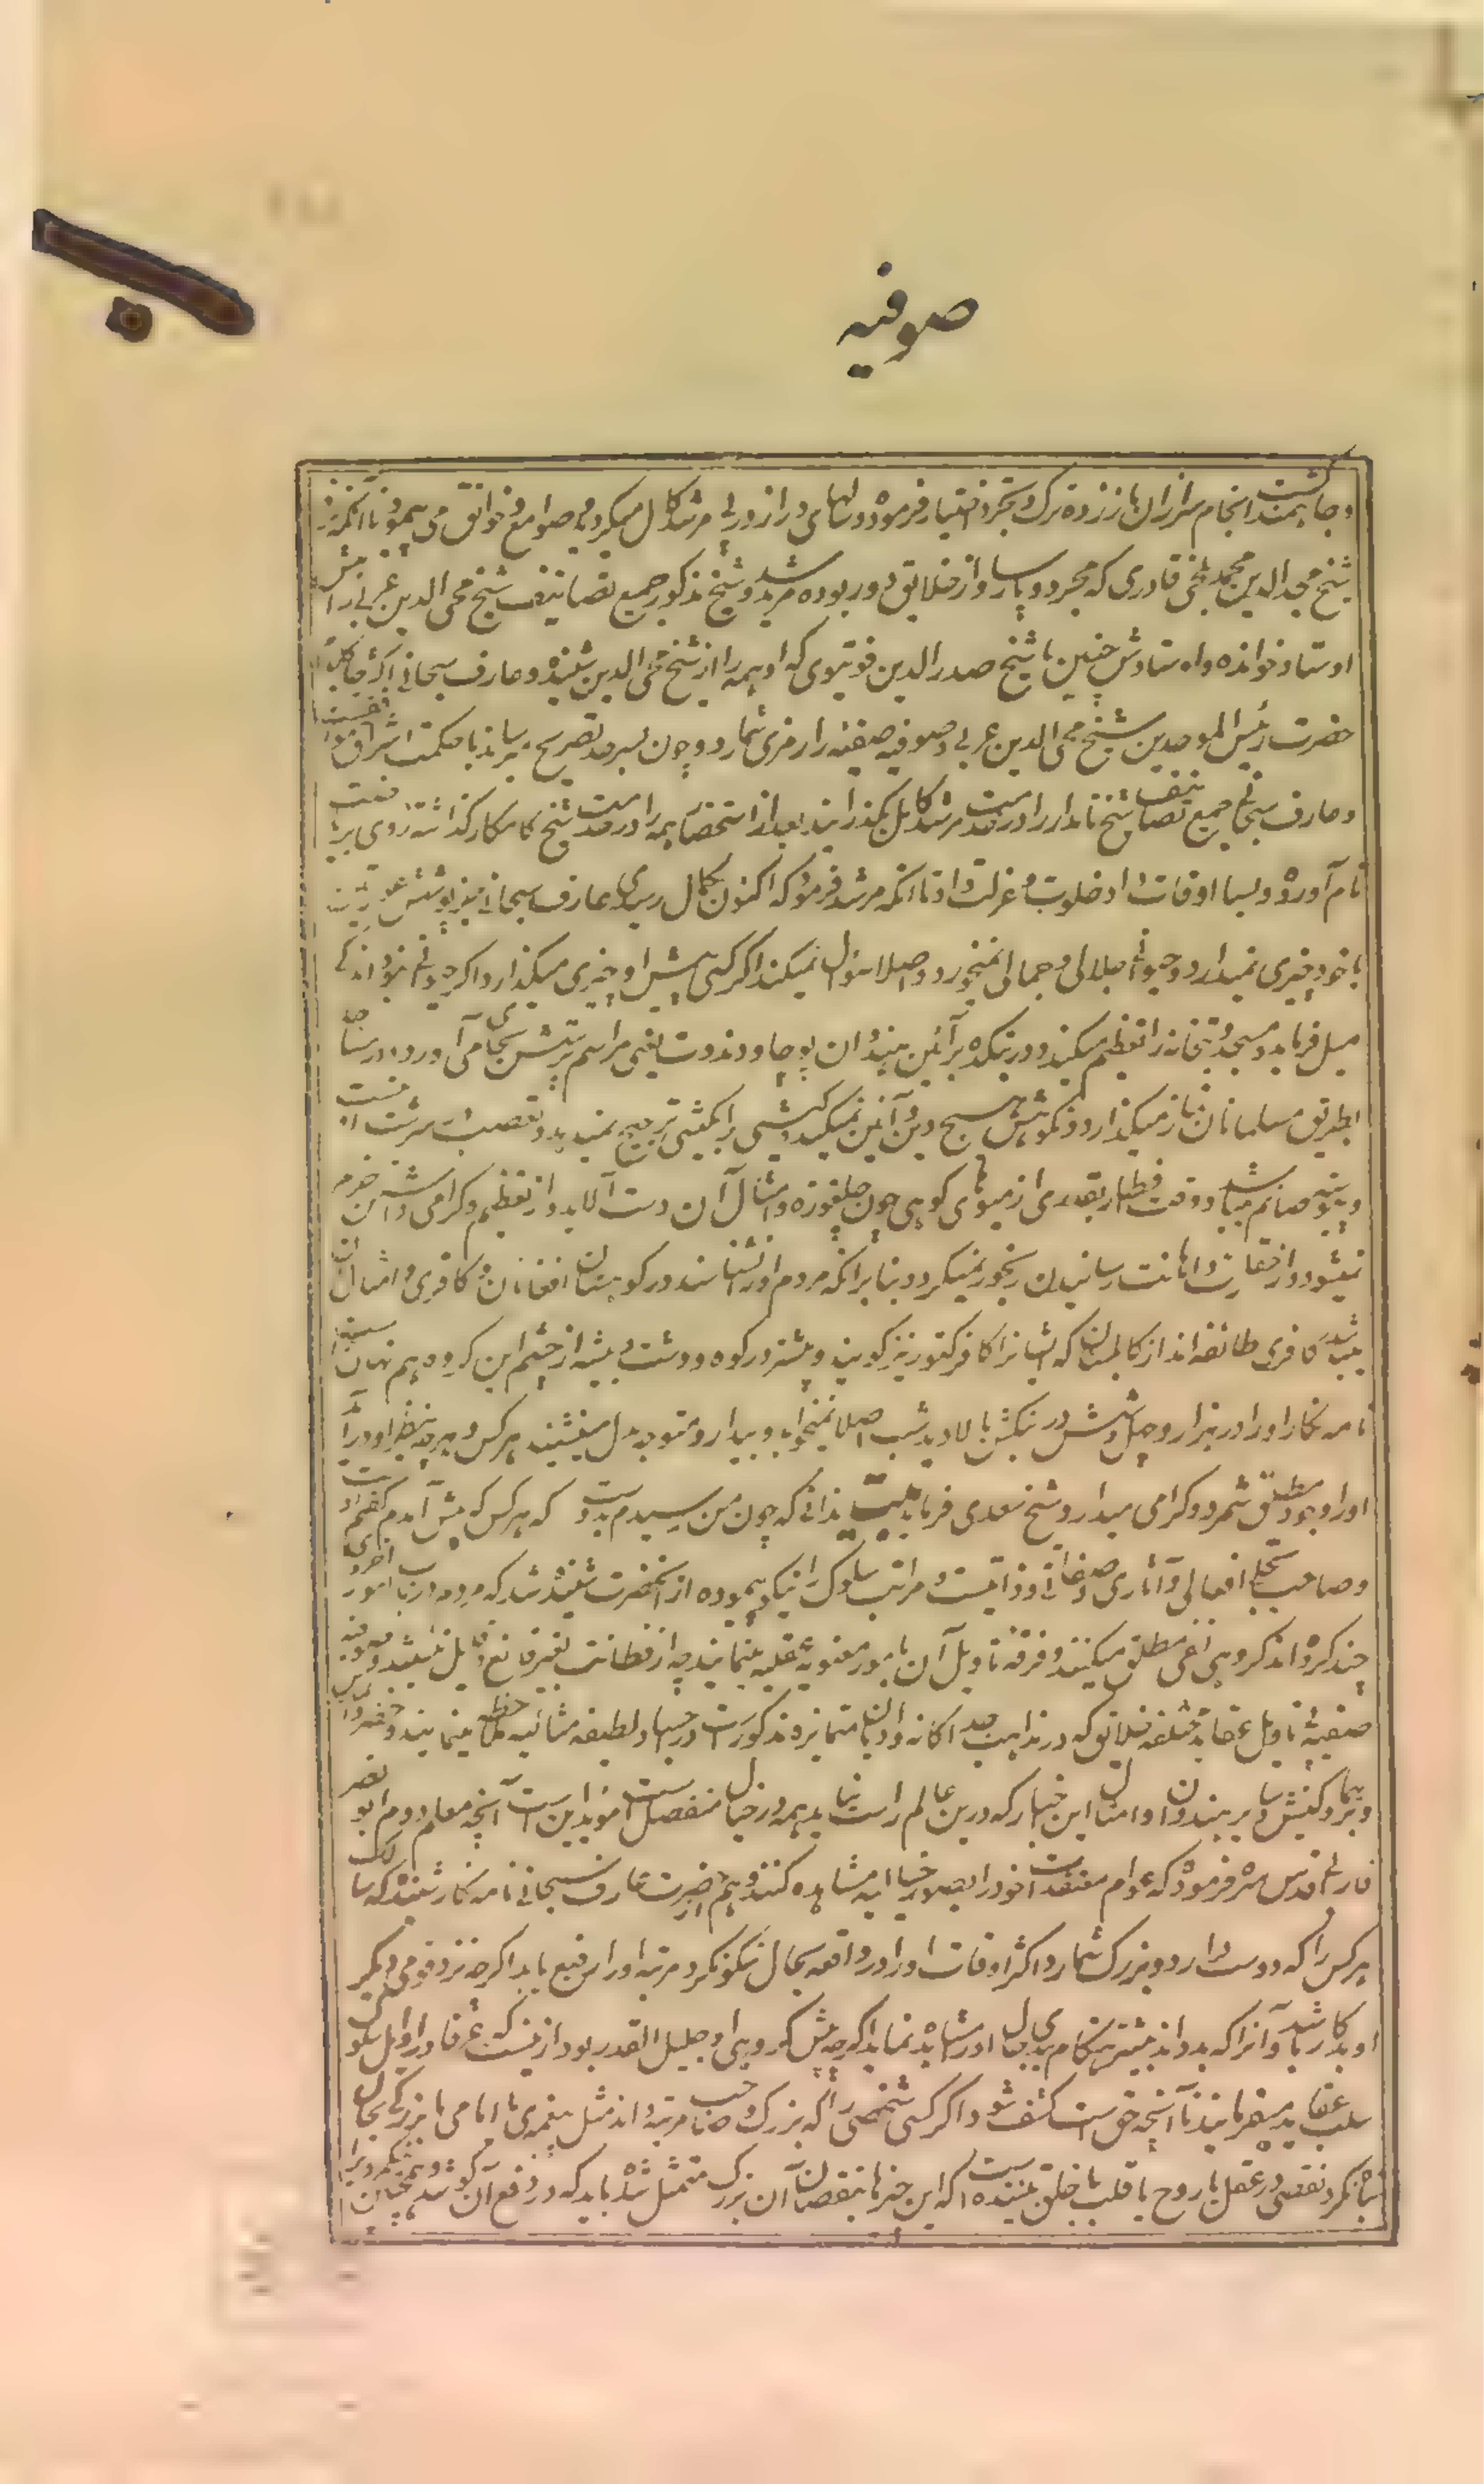 صوفیه
و جا گشت انجام سر ازان باز زده ترک و تجرد اختیار فرموده و سالهای دراز در پی مرشد کامل میگردید و صوامع و خوانق می پیمود تا آنکه نزد
شیخ مجدالدین محمد بلخی قادری که مجرد و پارسا و از خلایق دور بوده مرید شد و شیخ مذکور جمیع تصانیف شیخ محی الدین عربی را پیش
اوستاد خوانده و اوستادش همچنین تا شیخ صدرالدین قونیوی که او همه را از شیخ محی الدین شنیده و عارف سبحانی اکثر جا کلام
حضرت رئیس الموحدین شیخ محی الدین عربی و صوفیه صفیه را رمزی شمارد و چون بسرحد تصریح میرساند با حکمت اشراق موافقست
و عارف سبحانی جمیع تصانیف شیخ نامدار را در خدمت مرشد کامل بگذرانید بعد از استحضار همه را در خدمت شیخ کامکار گذاشته روی بریاضت
تام آورد و بسا اوقات او خلوت و عزلت داد تا آنکه مرشد فرمود که اکنون بکمال رسیدی عارف سبحانی بجز پوشش عورتین
با خود چیزی نمیدارد و حیوانی جلالی و جمالی نمیخورد و اصلا سؤال نمیکند اگر کسی پیش او چیزی میگذارد اگر حیوانی نبود اندکی
میل فرماید و مسجد و بتخانه را تعظیم میکند و در بتکده بر آئین هندوان پوجا و دندوت یعنی مراسم پرستش بجا می آورد و در مساجد
بطریق مسلمانان نماز میگذارد و نکوهش هیچ دین و آئین نمیکند و کیشی را بر کیشی ترجیح نمیدهد و تعصب در سرشت او نیست
و پیوسته صائم میباشد و وقت افطار بقدری از میوهای کوهی چون چلغوزه و امثال آن دست آلاید و از تعظیم و گرامی داشتن خرم
نمیشود و از حقارت و اهانت رسانیدن رنجور نمیگردد و بنابر آنکه مردم او را نشناسند در کوهستان افغانان و کافری و امثال آن
میباشد کافری طائفه اند از کابلستان که ایشانرا کافر کتور نیز گویند و بیشتر در کوه و دشت و بیشه از چشم این گروه هم نهان
نامه نگار او را در هزار و چهل و شش در بنگش بالا دید شب اصلا نمیخوابد و بیدار و متوجه دل مینشیند هر کس و هر چه بنظر او درآید
او را وجود مطلق شمرد و گرامی میدارد شیخ سعدی فرماید بیت ندانی که چون من رسیدم بدوست که هر کس که پیش آمدم گفتم اوست
و صاحب تجلی افعالی و آثاری و صفاتی و ذاتیست و مراتب سلوک را نیک پیموده از آنحضرت شنیده شد که مردم در باب امور اخروی
چند گروه اند گروهی نفی مطلق میکنند و فرقه تاویل آن بامور معنویه عقلیه مینمایند
صفیه تاویل عقاید مختلفه خلایق که در مذاهب جداگانه و ادیان متمایزه مذکورست
و پیکر و کنش و سایر هندوان و امثال این اخبار که درین عالم راست نیاید همه در خیال منفصل است مؤید این است آنچه معلم دوم ابو نصر
فارابی قدس سره فرموده که عوام معتقدات خود را بصور خیالیه مشاهده کنند و هم از حضرت عارف سبحانی نامه نگار شنید که سالک
هر کس را که دوست دارد و بزرگ شمارد اکثر اوقات او را در واقعه بحال نیکو نگرد و مرتبه او را رفیع یابد اگرچه نزد قومی دیگر
او بدکار باشد و آنرا که بد داند بیشتر هنگام بدی حال او مشاهده نماید اگرچه پیش گروهی او جلیل القدر بود ازینست که عرفا در اوایل سلوک
سلب عقاید میفرمایند تا آنچه حق است کشف شود و اگر کسی شخصی را که بزرگ و صاحب مرتبه داند مثل پیغمبری یا امامی یا بزرگی بحال
تباه نگرد نقصی در عقل یا روح یا قلب یا خلق بیننده است که این خبر بنقصان آن بزرگ متمثل شد باید که در رفع آن کوشد